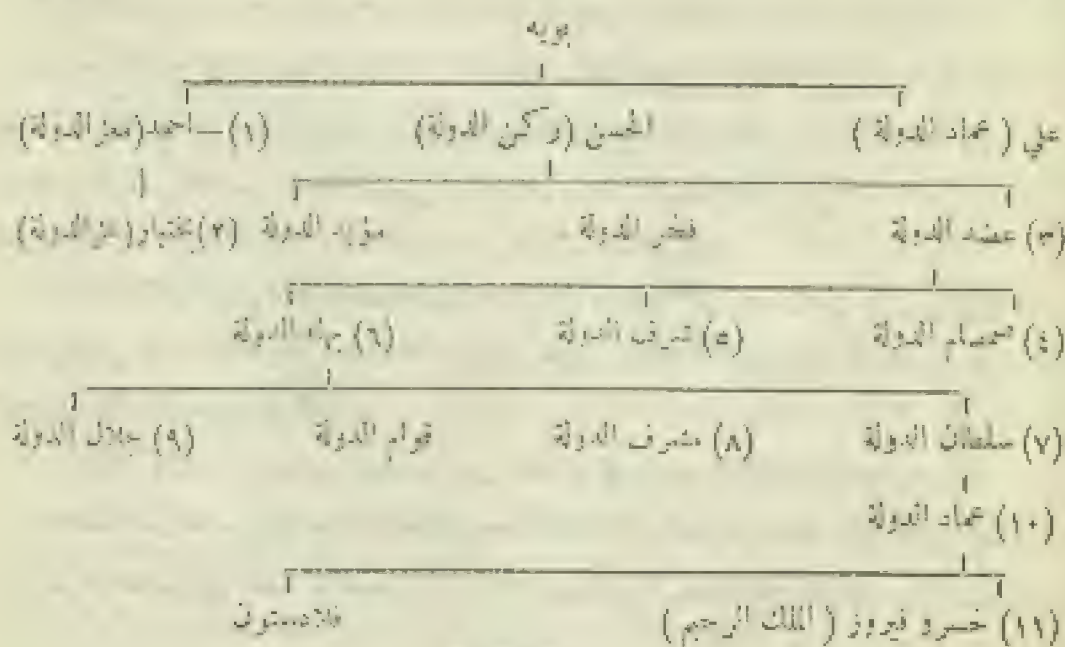 بويه
علي ( عماد الدولة ) الحسن (ركن الدولة) (١)—احمد(معز الدولة)
(٣) عضد الدولة فخر الدولة مؤيد الدولة (٢)بختيار(عز الدولة)
(٤) صمصام الدولة (٥) شرف الدولة (٦) بهاء الدولة
(٧) سلطان الدولة (٨) مشرف الدولة قوام الدولة (٩) جلال الدولة
(١٠) عماد الدولة
(١١) خسرو فيروز ( الملك الرحيم ) فلادستون